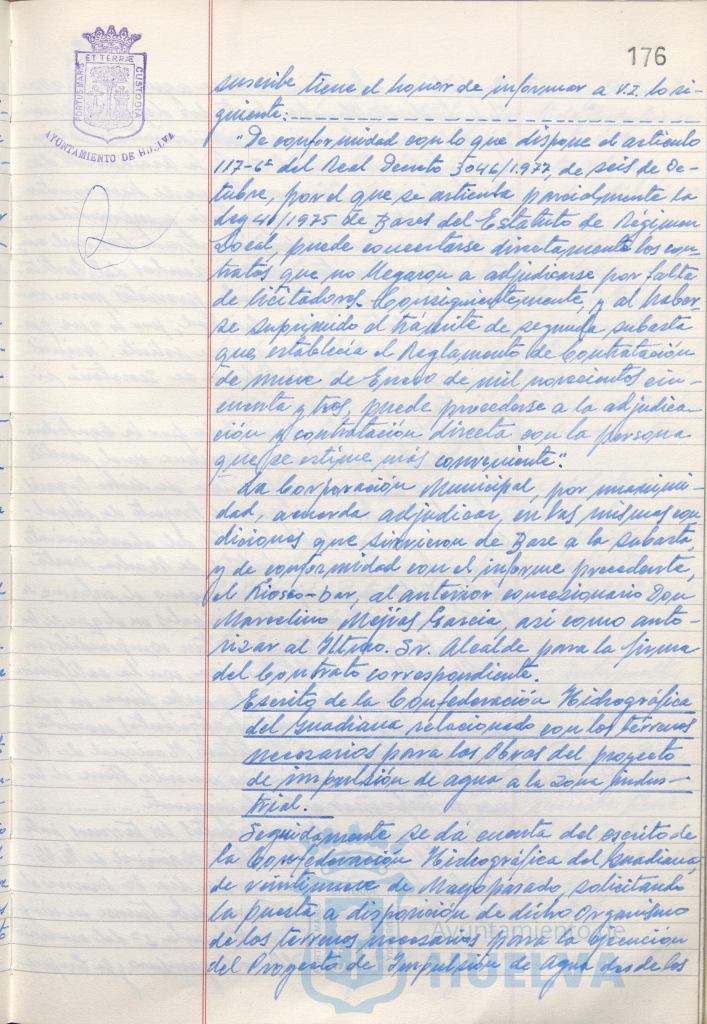 176
PORTUS MARIS
ET TERRÆ
CUSTODIA
AYUNTAMIENTO DE HUELVA
suscribe tiene el honor de informar a V.I. lo si-
guiente:
"De conformidad con lo que dispone el artículo
117-6º del Real Decreto 3046/1.977, de seis de Oc-
tubre, por el que se articula parcialmente la
Ley 41/1975 de Bases del Estatuto de Régimen
Local, puede concertarse directamente los con-
tratos que no llegaron a adjudicarse por falta
de licitadores. Consiguientemente, y al haber-
se suprimido el trámite de segunda subasta
que establecía el Reglamento de Contratación
de nueve de Enero de mil novecientos cin-
cuenta y tres, puede procederse a la adjudica-
ción y contratación directa con la persona
que se estime más conveniente".
La Corporación Municipal, por unanimi-
dad, acuerda adjudicar, en las mismas con
diciones que sirvieron de Base a la subasta,
y de conformidad con el informe precedente,
el Kiosco-bar, al anterior concesionario Don
Marcelino Mejías García, así como auto-
rizar al Iltmo. Sr. Alcalde para la firma
del Contrato correspondiente.
Escrito de la Confederación Hidrográfica
del Guadiana relacionado con los terrenos
necesarios para las Obras del proyecto
de impulsión de agua a la zona indus-
trial.
Seguidamente se dá cuenta del escrito de
la Confederación Hidrográfica del Guadiana,
de veintinueve de Mayo pasado, solicitando
la puesta a disposición de dicho Organismo
de los terrenos necesarios para la Ejecución
del Proyecto de Impulsión de Agua desde los
Ayuntamiento de
HUELVA